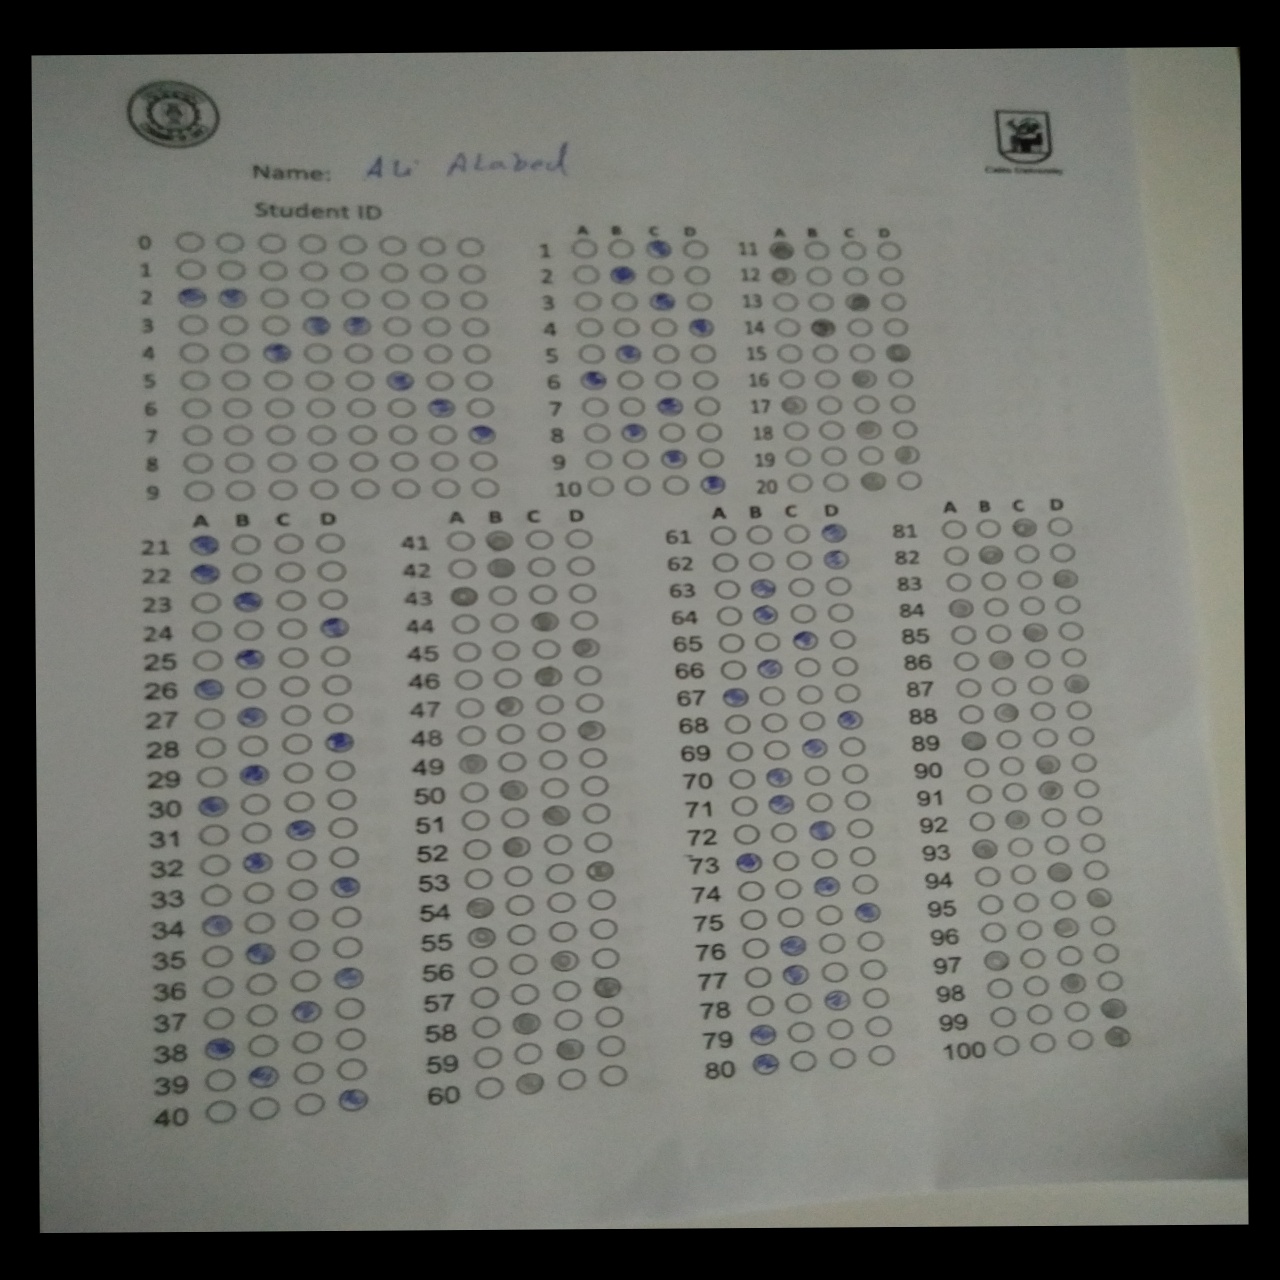 Cairo University
Name: Ali Alabed
Student ID
0
1
2
3
4
5
6
7
8
9
A B C D
1
2
3
4
5
6
7
8
9
10
A B C D
11
12
13
14
15
16
17
18
19
20
A B C D
21
22
23
24
25
26
27
28
29
30
31
32
33
34
35
36
37
38
39
40
A B C D
41
42
43
44
45
46
47
48
49
50
51
52
53
54
55
56
57
58
59
60
A B C D
61
62
63
64
65
66
67
68
69
70
71
72
73
74
75
76
77
78
79
80
A B C D
81
82
83
84
85
86
87
88
89
90
91
92
93
94
95
96
97
98
99
100